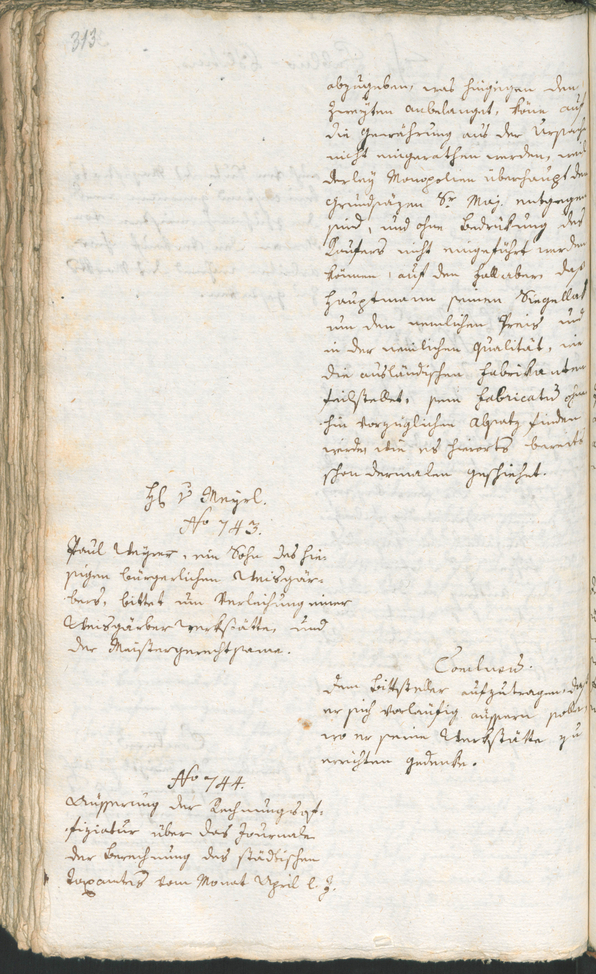 313.
abzugeben, was hingegen den
zweyten anbelanget, könne auf
die Gewährung aus der Ursache
nicht eingerathen werden, weil
derley Monopolien überhaupt den
Grundsäzen Sr Maj. entgegen
sind, und ohne Bedrükung des
Käufers nicht eingeführt werden
können, auf den Fall aber, daß
Hauptmann seinen Siegellak
um den nemlichen Preis und
in der nemlichen Qualität, wie
die ausländischen Fabrikanten
feilstellet, sein Fabricatum ohne
hin vorzüglichen Absatz finden
werde, wie es hierorts bereits
schon dermalen geschiehet.
H v Meyrl.
No 743.
Paul Mayer, ein Sohn des hie-
sigen bürgerlichen Weisgär-
bers, bittet um Verleihung einer
Weisgärber Werkstätte, und
der Meistergerechtsame.
Conclusum.
Dem Bittsteller aufzutragen, daß
er sich vorläufig äussern solle,
wo er seine Werkstätte zu
errichten gedenke.
No 744.
Äusserung der Rechnungsof-
fiziatur über das Journal
der Berechnung des städtischen
Taxamtes vom Monat April l. J.